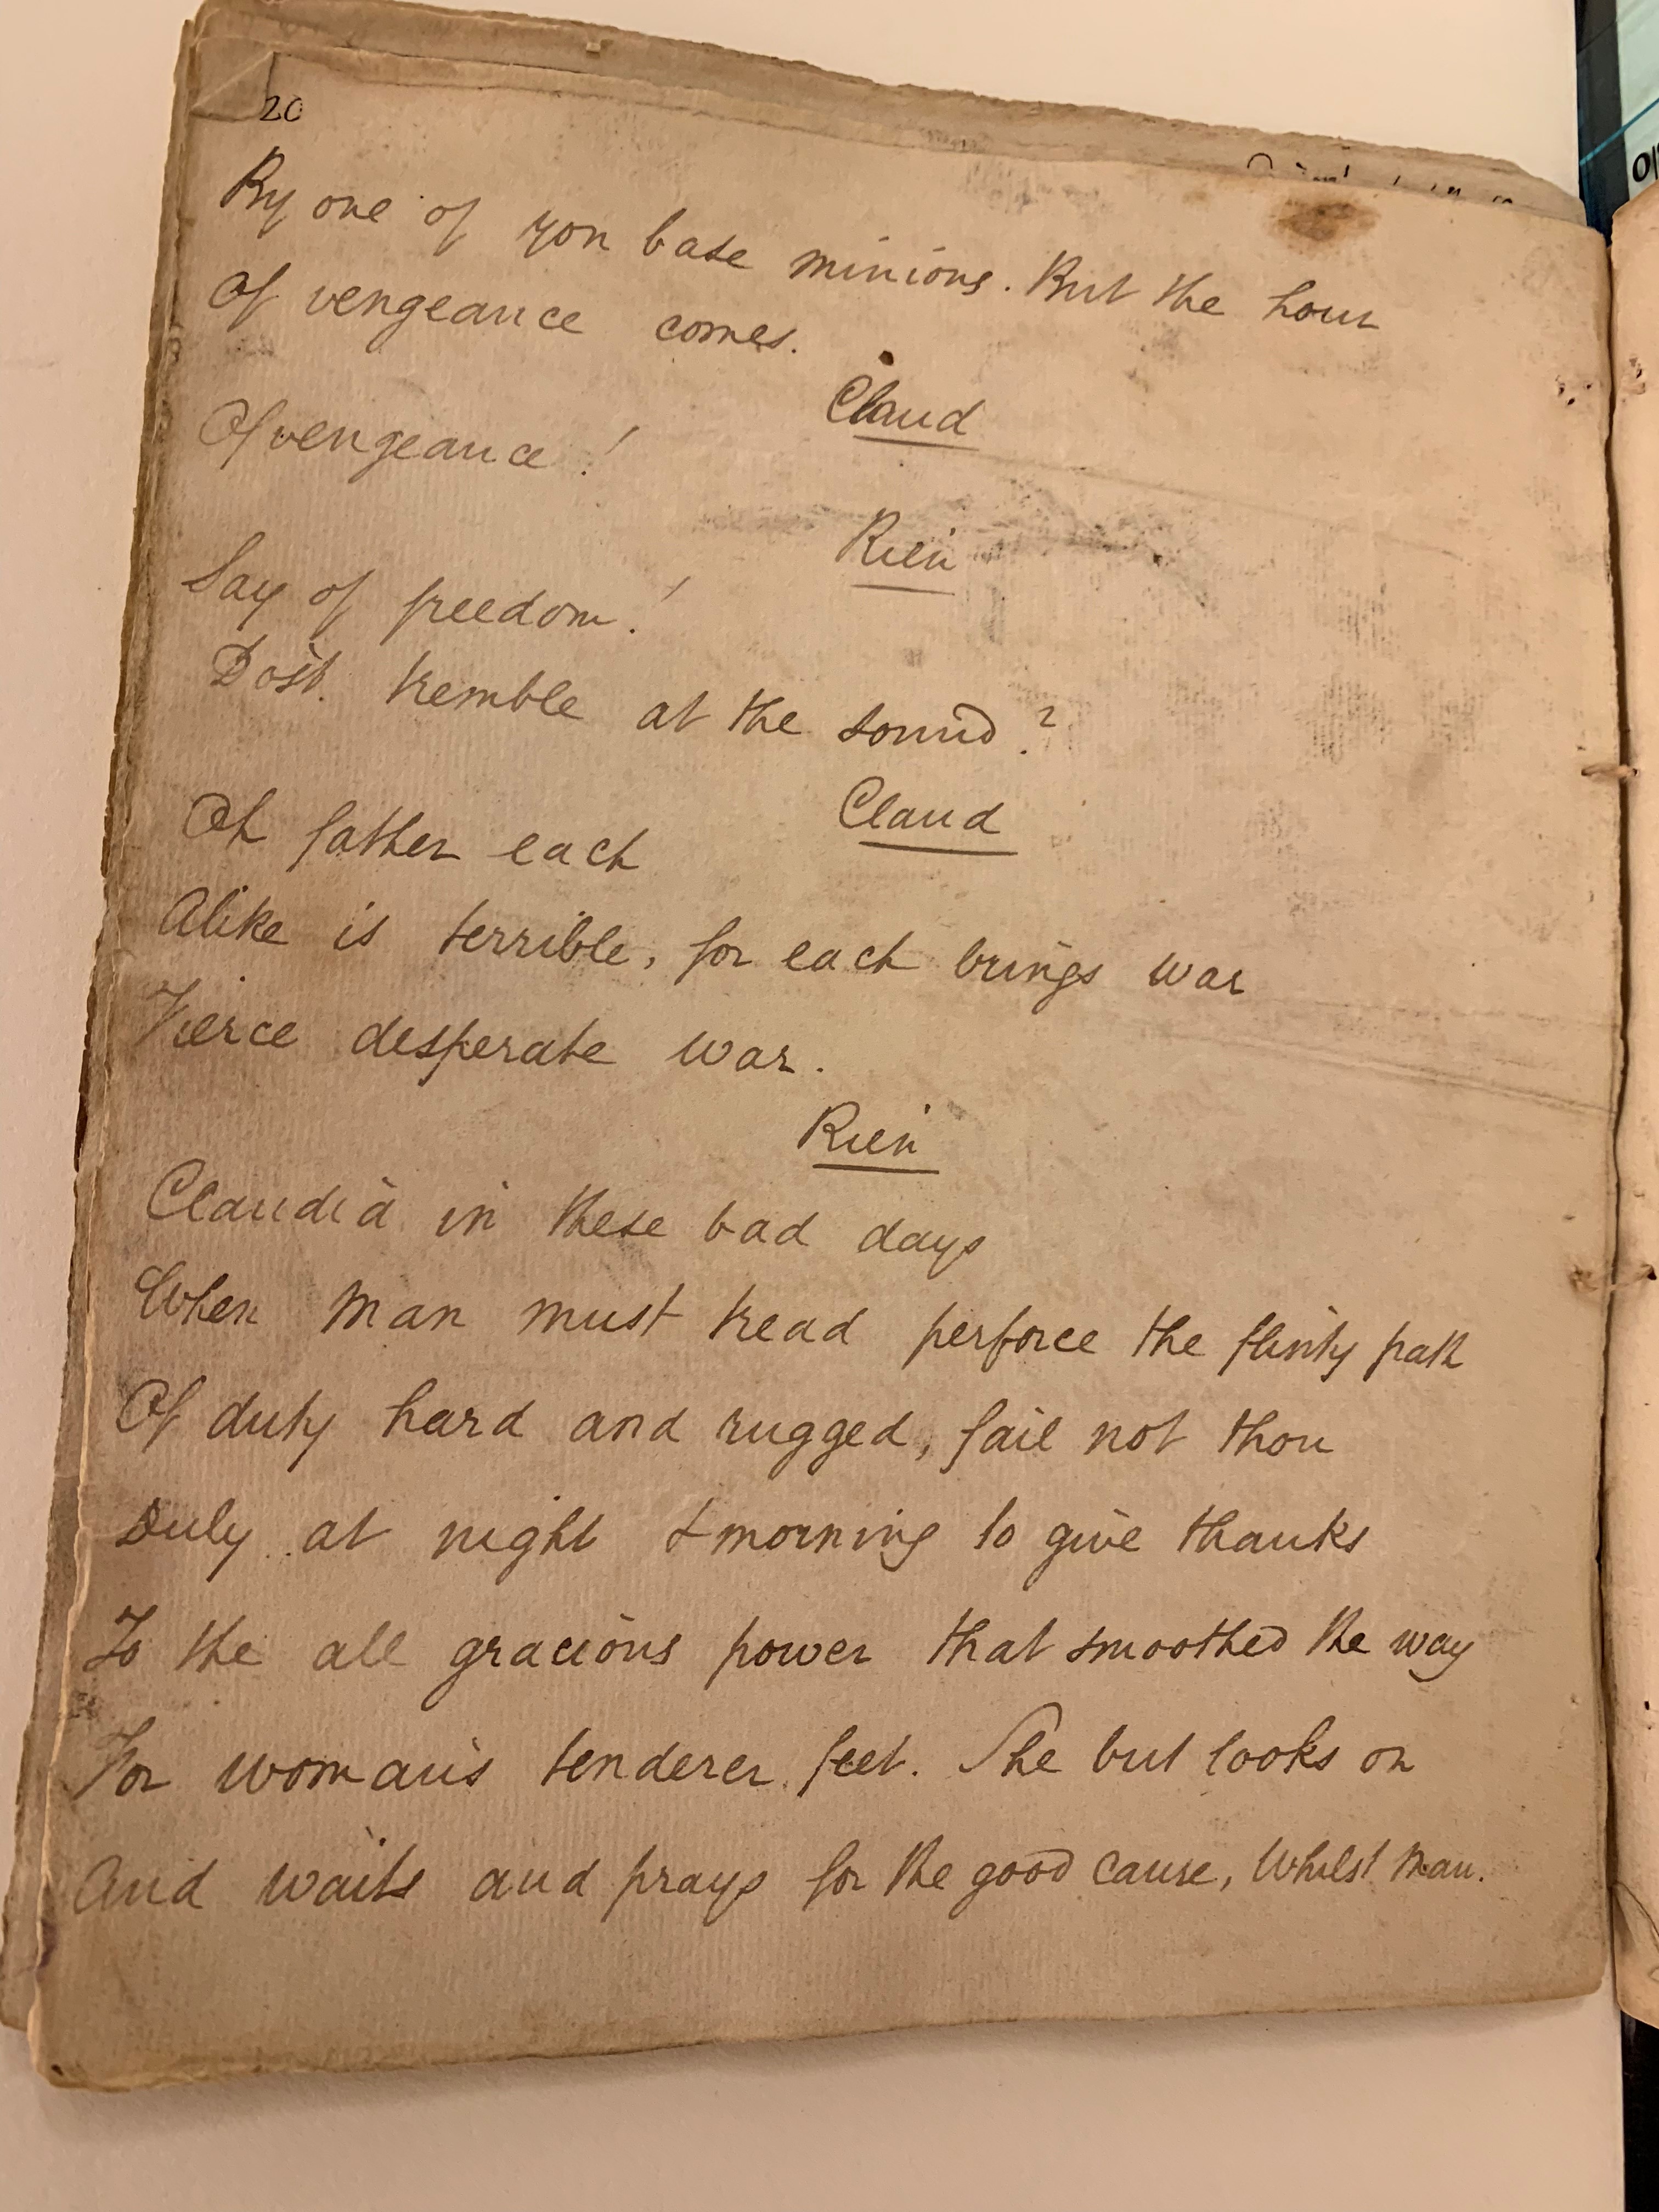 20
By one of yon base minions. But the hour
Of vengeance comes.
Claud
Of vengeance!
Rien
Say of freedom!
Dost tremble at the sound?
Claud
Oh father each
Alike is terrible, for each brings war
Fierce desperate war.
Rien
Claudia in these bad days
When man must tread perforce the flinty path
Of duty hard and rugged, fail not thou
Duly at night & morning to give thanks
To the all gracious power that smoothed the way
For woman's tenderer feet. She but looks on
And waits and prays for the good cause, Whilst man.